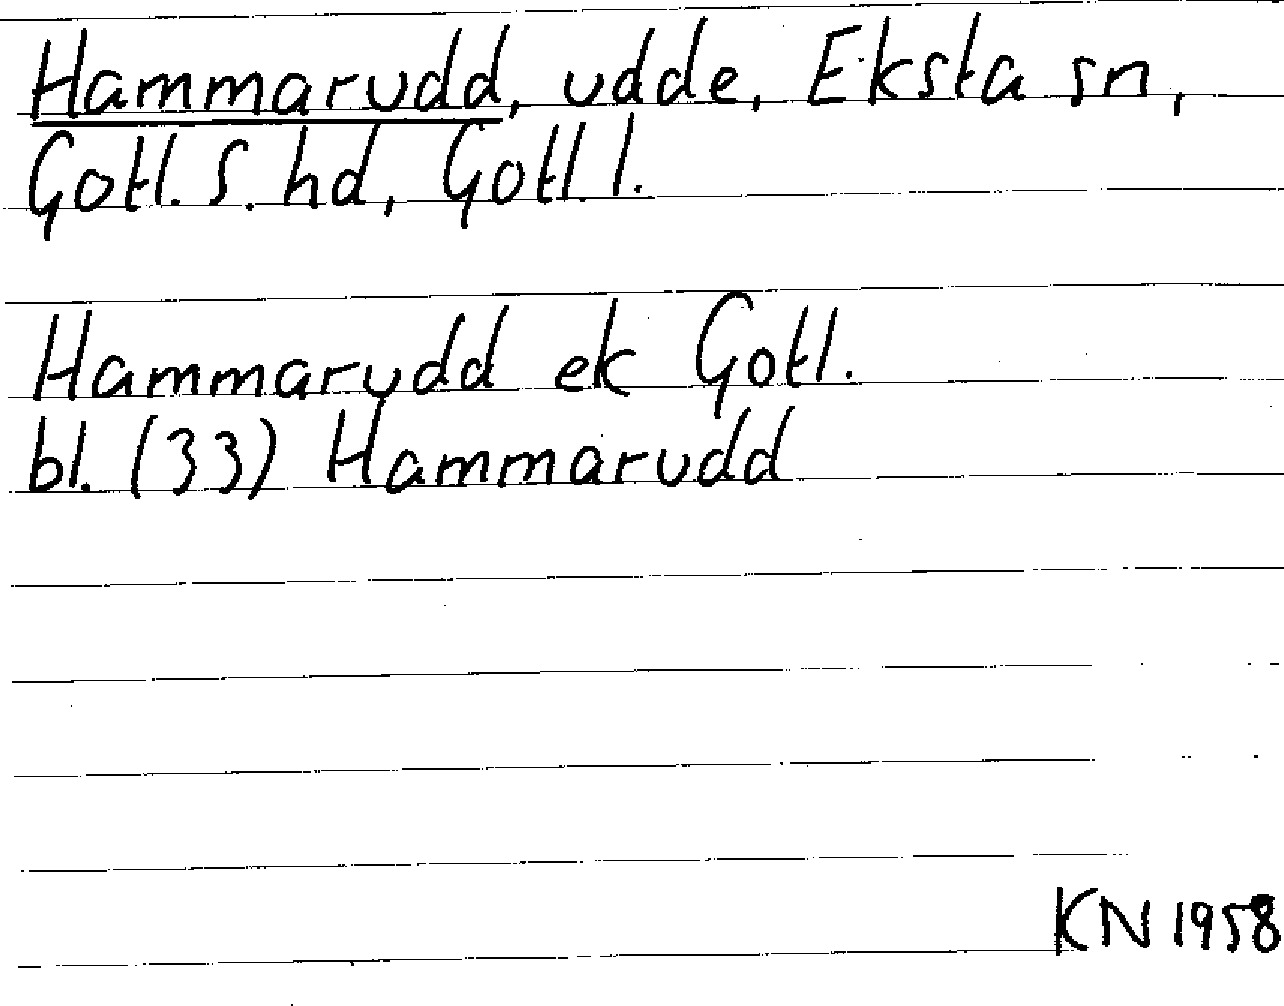 Hammarudd, udde, Eksta sn,
Gotl. S. hd, Gotl. l.
Hammarudd ek Gotl.
bl. (33) Hammarudd
KN 1958